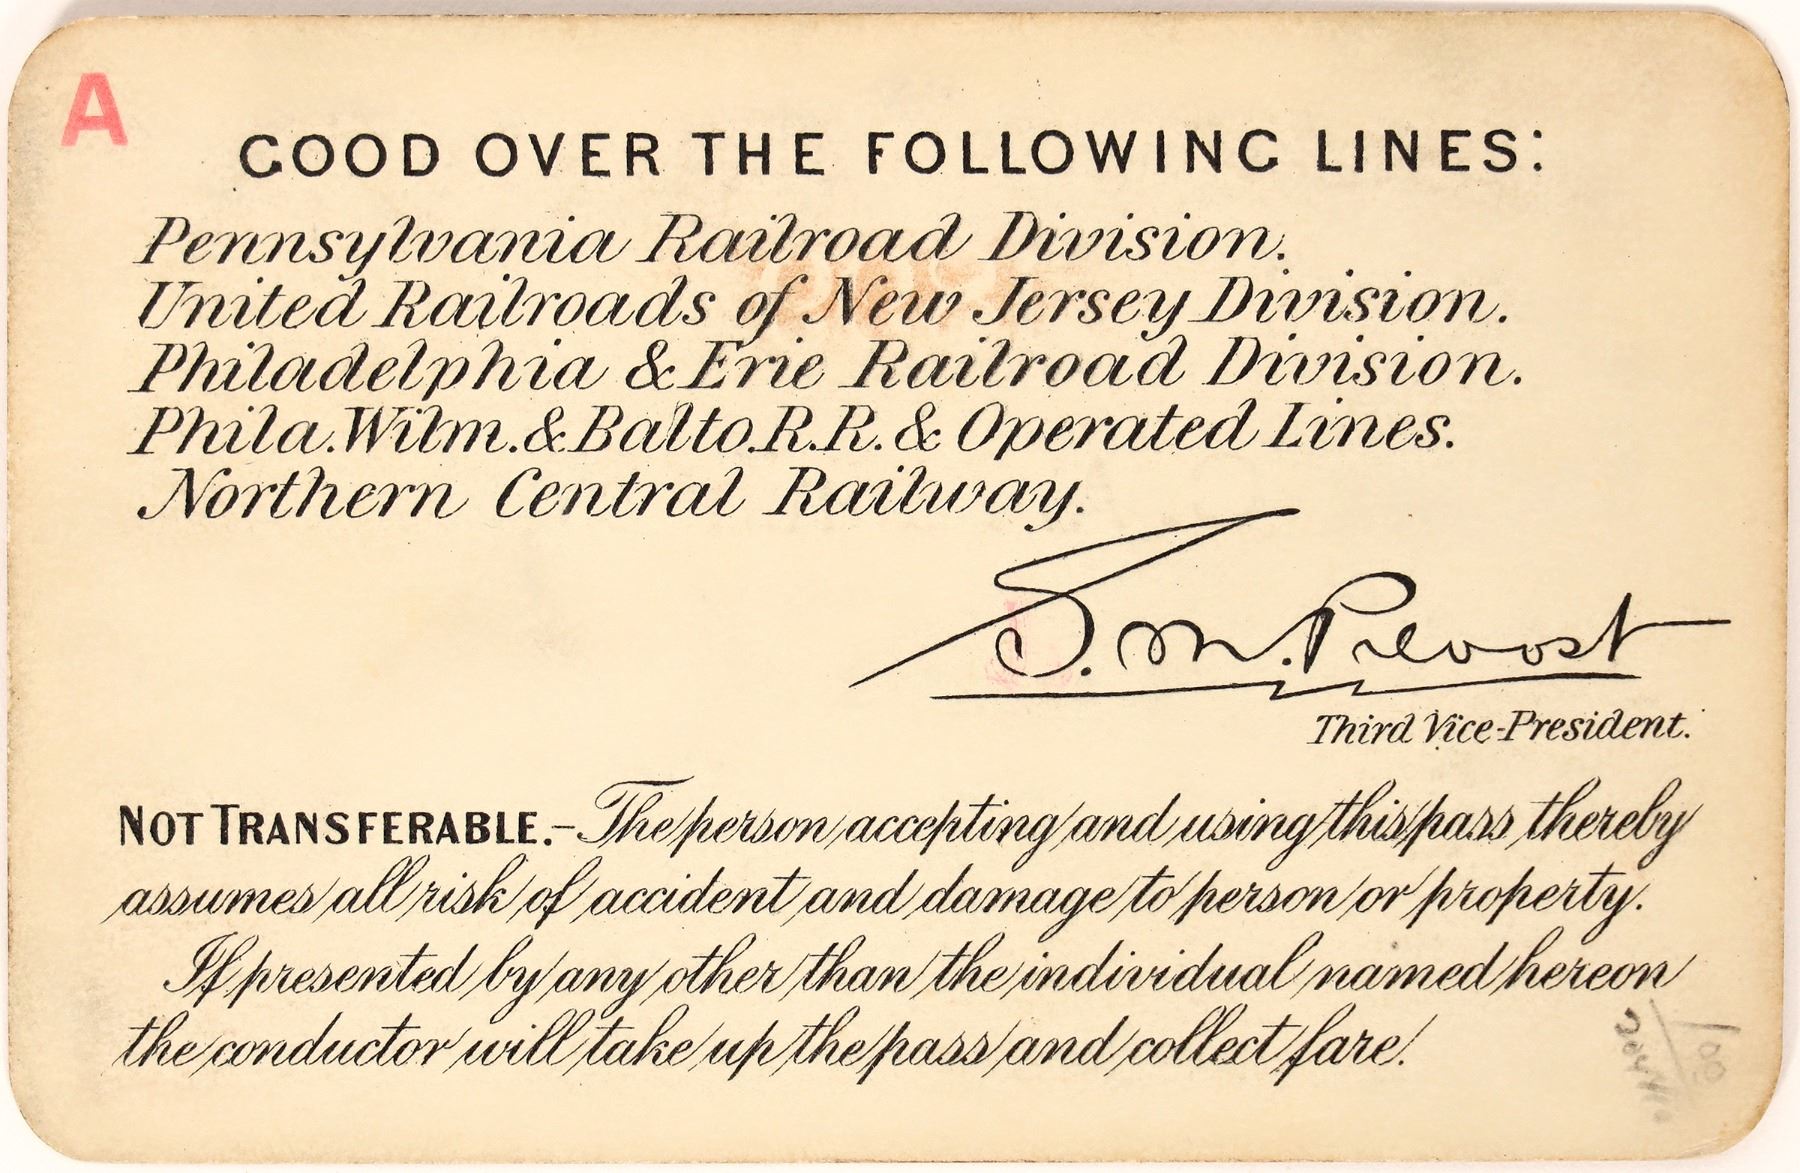 A
GOOD OVER THE FOLLOWING LINES:
Pennsylvania Railroad Division.
United Railroads of New Jersey Division.
Philadelphia & Erie Railroad Division.
Phila. Wilm. & Balto. R.R. & Operated Lines.
Northern Central Railway.
S. M. Prevost
Third Vice-President.
NOT TRANSFERABLE.- The person accepting and using this pass thereby
assumes all risk of accident and damage to person or property.
If presented by any other than the individual named hereon
the conductor will take up the pass and collect fare.